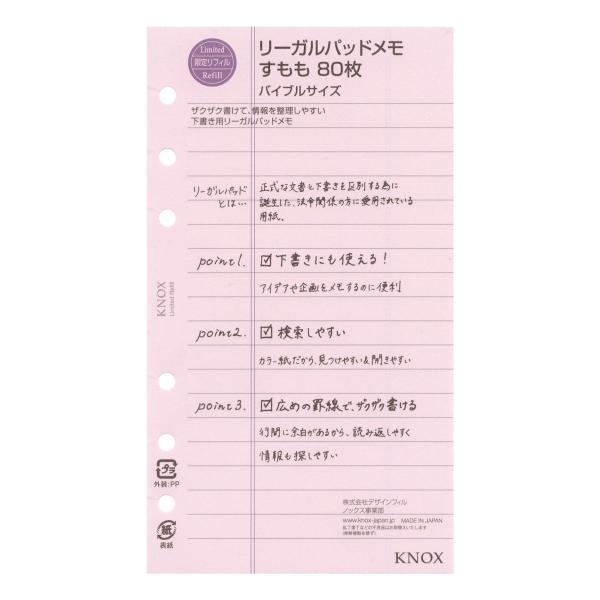 Limited
限定リフィル
Refill
リーガルパッドメモ
すもも 80枚
バイブルサイズ
ザクザク書けて、情報を整理しやすい
下書き用リーガルパッドメモ
リーガルパッド
とは…
正式な文書と下書きを区別する為に
誕生した、法令関係の方に愛用されている
用紙。
point1.
☑下書きにも使える!
アイデアや企画をメモするのに便利
KNOX
Limited Refill
point2.
☑検索しやすい
カラー紙だから、見つけやすい&開きやすい
point3.
☑広めの罫線で、ザクザク書ける
行間に余白があるから、読み返しやすく
情報も探しやすい
プラ
外装:PP
紙
表紙
株式会社デザインフィル
ノックス事業部
www.knox-japan.jp MADE IN JAPAN
乱丁落丁などの不良品はお取替えいたします
KNOX